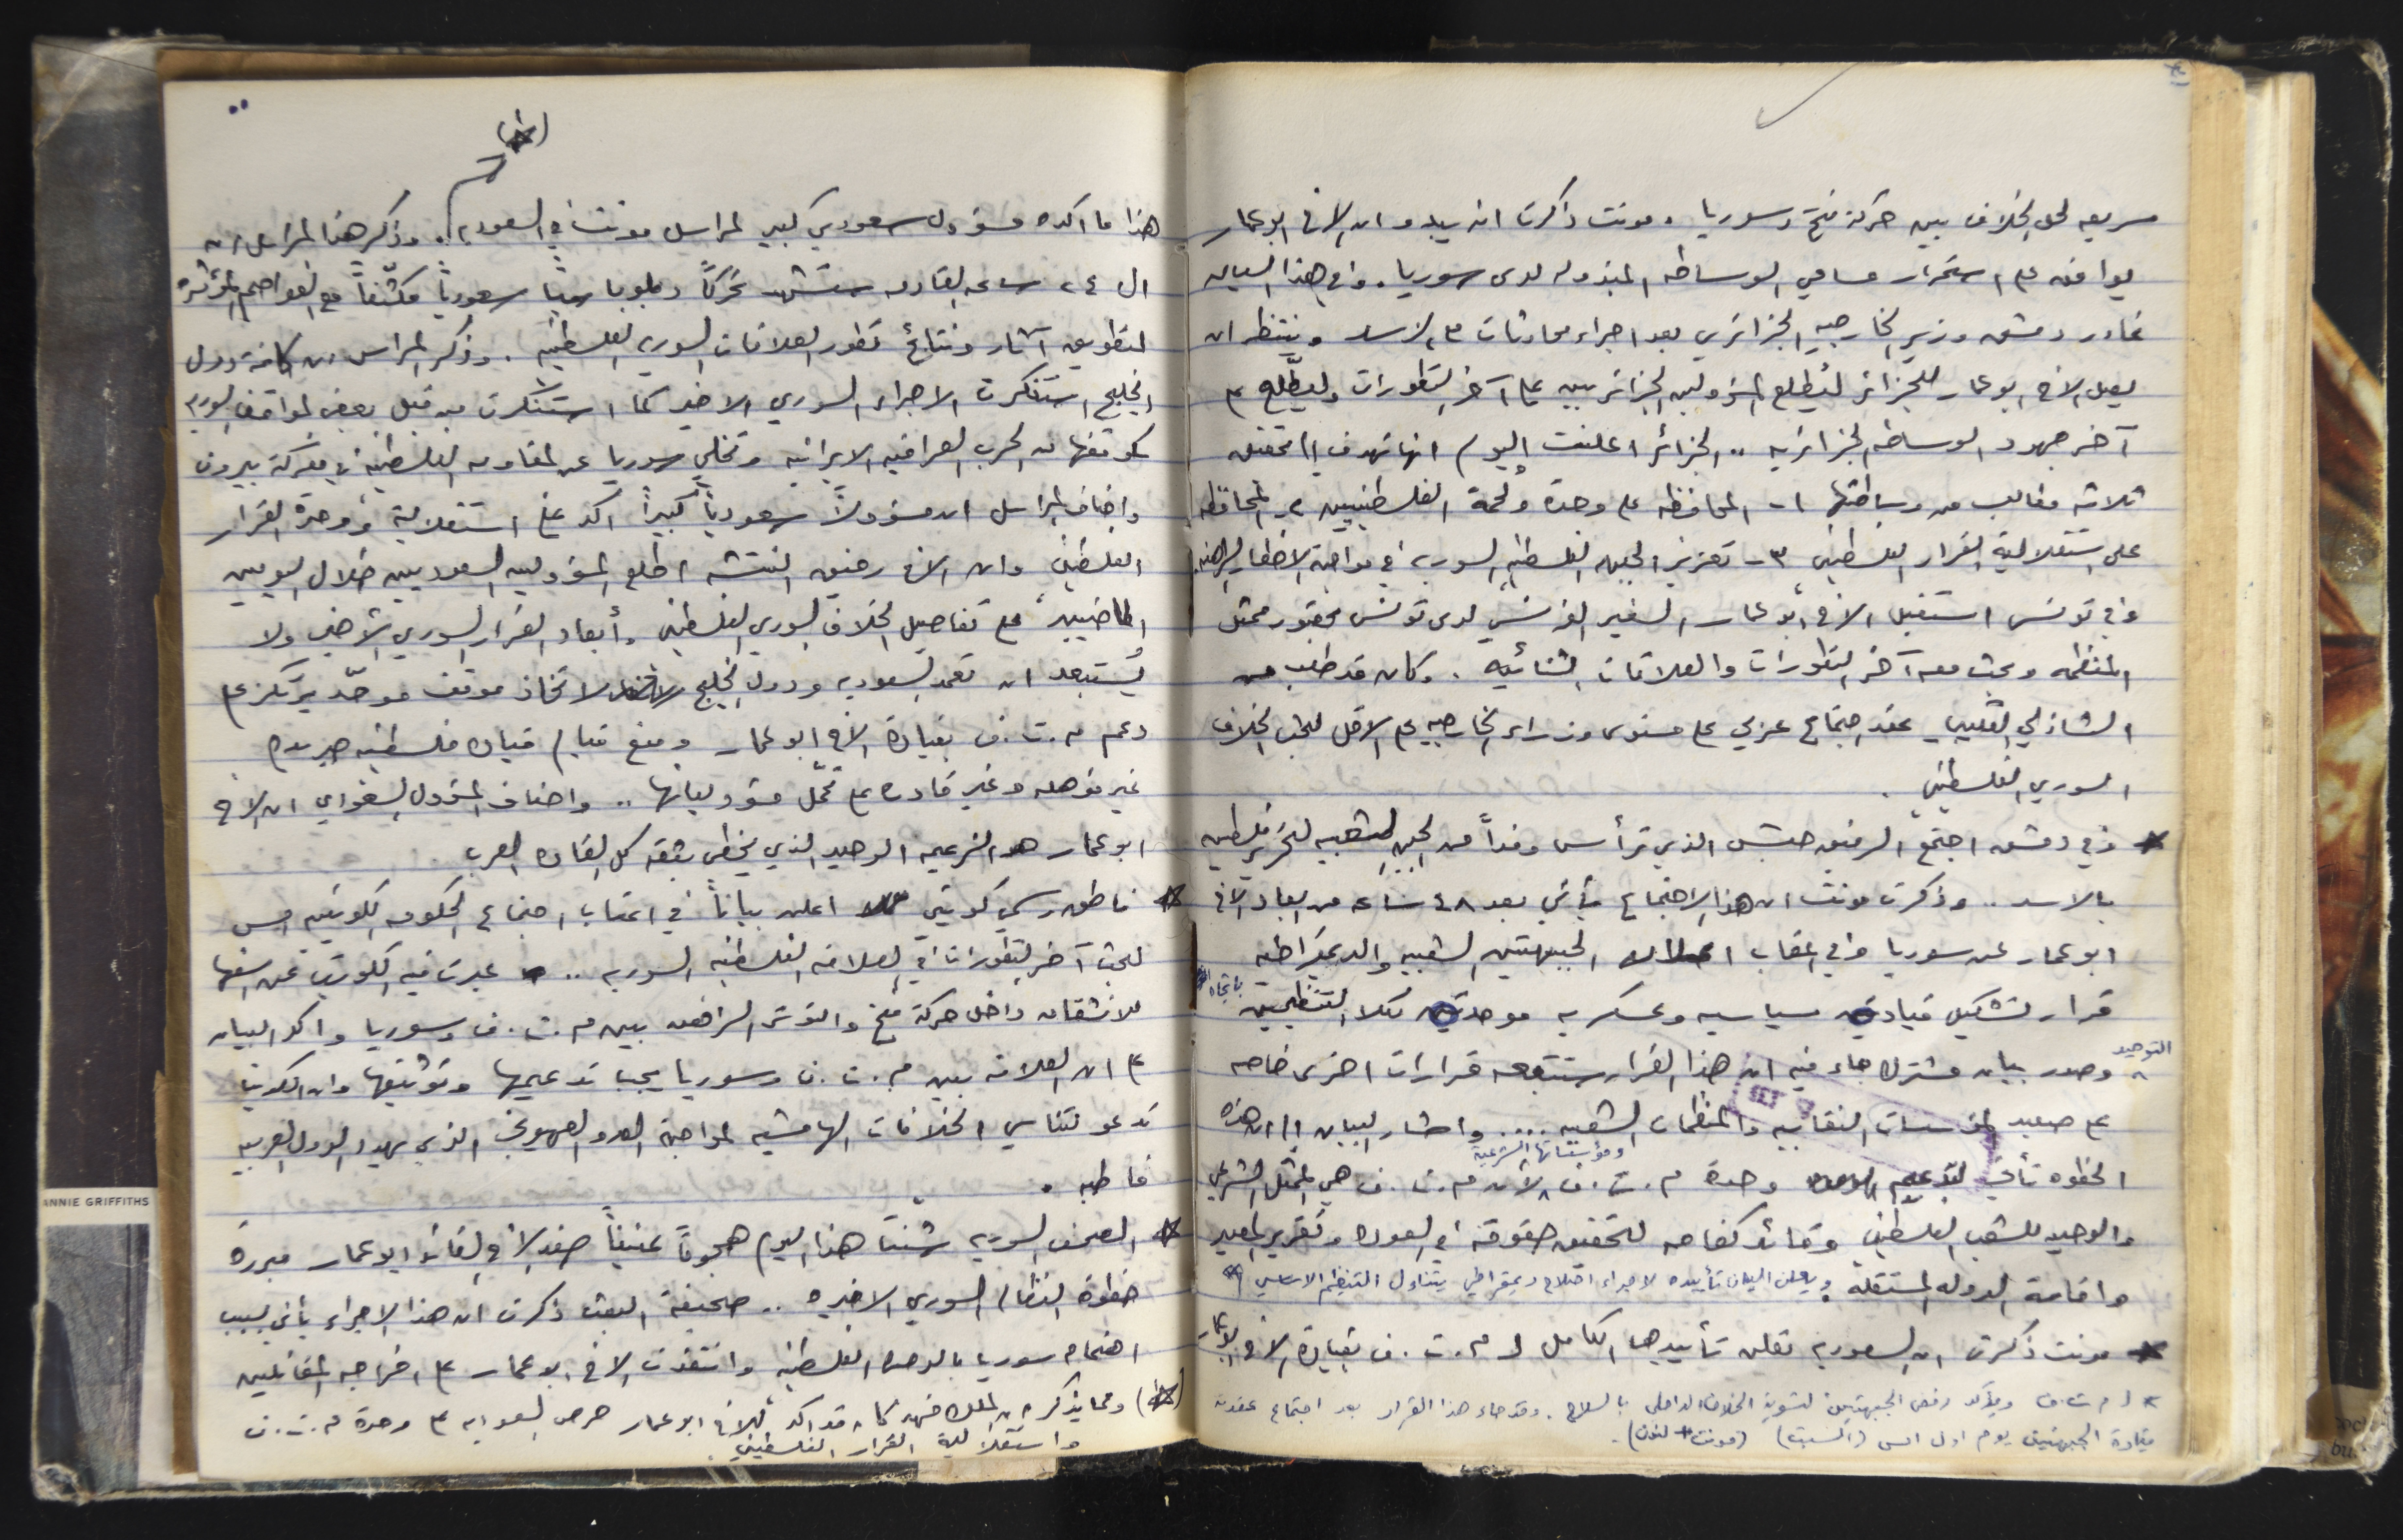 سريعه لحل الخلاف بين حركة فتح وسوريا. مونت ذكرت انه يبدو ان الاخ ابو عمار
يوافق على استمرار مساعي الوساطه المبذوله لدى سوريا. وفي هذا السياق
غادر دمشق وزير الخارجيه الجزائري بعد اجراء محادثات مع الاسد وينتظر ان
يصل الاخ ابو عمار للجزائر ليُطلع المسؤولين الجزائريين على آخر التطورات وليطّلع على
آخر جهود الوساطه الجزائريه .. الجزائر اعلنت اليوم انها تهدف الى تحقيق
ثلاثة مطالب من وساطتها ١- المحافظه على وحدة ولحمة الفلسطينيين ٢- المحافظه
على استقلالية القرار الفلسطيني ٣- تعزيز الجبهه الفلسطينيه السوريه في مواجهة الاخطار الراهنه.
وفي تونس استقبل الاخ ابو عمار السفير الفرنسي لدى تونس بحضور ممثل
المنظمه وبحث معه آخر التطورات والعلاقات الثنائيه. وكان قد طلب من
الشاذلي القليبي عقد اجتماع عربي على مستوى وزراء الخارجيه على الاقل لبحث الخلاف
السوري الفلسطيني.
* وفي دمشق اجتمع الرفيق حبش الذي ترأس وفداً من الجبهه الشعبيه لتحرير فلسطين
بالاسد .. وذكرت مونت ان هذا الاجتماع يأتي بعد ٤٨ ساعه من ابعاد الاخ
ابو عمار عن سوريا وفي اعقاب اعلان الجبهتين الشعبيه والديمقراطيه
قرار تشكيل قيادة سياسيه وعسكريه موحدة لكلا التنظيمين باتجاه
التوحيد وصدر بيان مشترك جاء فيه ان هذا القرار ستتبعه قرارات اخرى خاصه
على صعيد المؤسسات النقابيه والمنظمات الشعبيه .... واشار البيان الى ان هذه
الخطوه تأتي لتدعيم وحدة م.ت.ف ومؤسساتها الشرعية لأن م.ت.ف هي الممثل الشرعي
والوحيد للشعب الفلسطيني وقائد كفاحه لتحقيق حقوقه في العوده وتقرير المصير
واقامة الدوله المستقله. ويعلن البيان تأييده لاجراء اصلاح ديمقراطي يتناول التنظيم الاساسي *
* مونت ذكرت ان السعوديه تعلن تأييدها الكامل ل م.ت.ف بقيادة الاخ ابو عمار
* ل م.ت.ف ويؤكد رفض الجبهتين لتسوية الخلاف الداخلي بالسلاح. وقد جاء هذا القرار بعد اجتماع عقدته
قيادة الجبهتين يوم اول امس (السبت) (مونت + لندن).
هذا ما اكده مسؤول سعودي كبير لمراسل مونت في السعوديه. وذكر هذا المراسل ان
ال ٢٤ ساعه القادمه ستشهد تحركاً دبلوماسياً سعودياً مكثّفاً مع العواصم المؤثره
لتطويق آثار ونتائج تطور العلاقات السوريه الفلسطينيه. وذكر المراسل ان كافة دول
الخليج استنكرت الاجراء السوري الاخير كما استنكرت من قبل بعض المواقف السوريه
كموقفها من الحرب العراقيه الايرانيه وتخلي سوريا عن المقاومه الفلسطينيه في معركة بيروت
واضاف المراسل ان مسؤولاً سعودياً كبيراً اكد على استقلالية ووحدة القرار
الفلسطيني وان الاخ رفيق النتشه اطلع المسؤولين السعوديين خلال اليومين
الماضيين على تفاصيل الخلاف السوري الفلسطيني وأبعاد القرار السوري الاخير ولا
يُستبعد ان تعمد السعوديه ودول الخليج لاتخاذ موقف موحّد يرتكز على
دعم م.ت.ف بقيادة الاخ ابو عمار ومنع قيام قياده فلسطينيه جديده
غير مؤهله وغير قادره على تحمّل مسؤولياتها .. واضاف المسؤول السعودي ان الاخ
ابو عمار هو الزعيم الوحيد الذي يحظى بثقة كل القاده العرب
* ناطق رسمي كويتي اعلن بياناً في اعقاب اجتماع الحكومه الكويتيه امس
لبحث آخر التطورات في العلاقه الفلسطينيه السوريه .. عبرت فيه الكويت عن اسفها
للانشقاق داخل حركة فتح والتوتر الراهن بين م.ت.ف وسوريا واكد البيان
على ان العلاقه بين م.ت.ف وسوريا يجب تدعيمها وتوثيقها وان الكويت
تدعو لتناسي الخلافات الهامشيه لمواجهة العدو الصهيوني الذي يهدد الدول العربيه
قاطبه.
* الصحف السوريه شنت هذا اليوم هجوماً عنيفاً ضد الاخ القائد ابو عمار مبررة
خطوة النظام السوري الاخيره .. صحيفة البعث ذكرت ان هذا الاجراء يأتي بسبب
اهتمام سوريا بالوحده الفلسطينيه وانتقدت الاخ ابو عمار على اخراجه المقاتلين
(*) ومما يذكر ان الملك فهد كان قد اكد للاخ ابو عمار حرص السعوديه على وحدة م.ت.ف
واستقلالية القرار الفلسطيني.
ANNIE GRIFFITHS